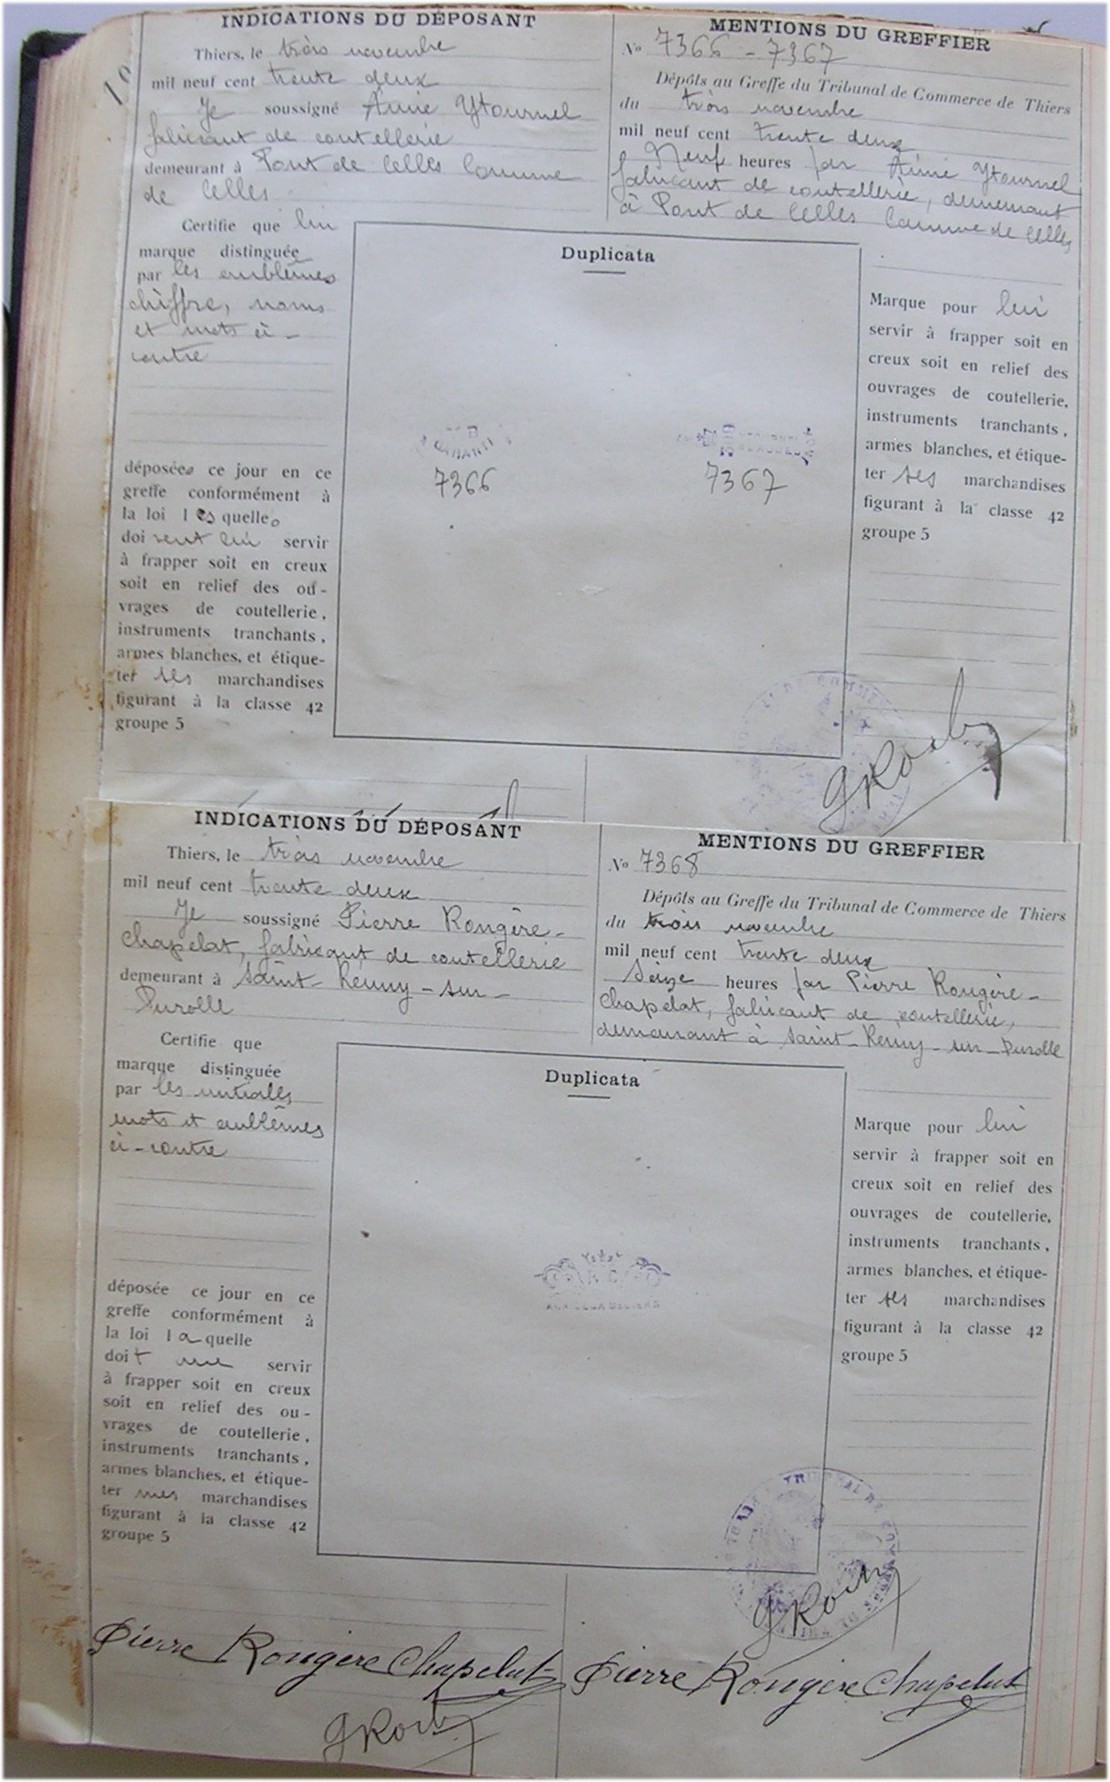 INDICATIONS DU DÉPOSANT
Thiers, le trois novembre
mil neuf cent trente deux
Je soussigné Aimé Ytournel
fabricant de coutellerie
demeurant à Pont de Celles Commune
de Celles
Certifie que
marque distinguée
par les emblêmes
chiffre, noms
et mots ci-
contre
déposées ce jour en ce
greffe conformément à
la loi lesquelles
doivent lui servir
à frapper soit en creux
soit en relief des ou-
vrages de coutellerie,
instruments tranchants,
armes blanches, et étique-
ter ses marchandises
figurant à la classe 42
groupe 5
MENTIONS DU GREFFIER
No 7366 - 7367
Dépôts au Greffe du Tribunal de Commerce de Thiers
du trois novembre
mil neuf cent trente deux
Neuf heures par Aimé Ytournel
fabricant de coutellerie, demeurant
à Pont de Celles Commune de Celles
Duplicata
7366
7367
Marque pour lui
servir à frapper soit en
creux soit en relief des
ouvrages de coutellerie,
instruments tranchants,
armes blanches, et étique-
ter ses marchandises
figurant à la classe 42
groupe 5
GRoch
INDICATIONS DU DÉPOSANT
Thiers, le trois novembre
mil neuf cent trente deux
Je soussigné Pierre Rongère-
Chapelat, fabricant de coutellerie
demeurant à Saint-Remy-sur-
Durolle
Certifie que
marque distinguée
par les initiales
mots et emblêmes
ci-contre
déposée ce jour en ce
greffe conformément à
la loi laquelle
doit me servir
à frapper soit en creux
soit en relief des ou-
vrages de coutellerie,
instruments tranchants,
armes blanches, et étique-
ter mes marchandises
figurant à la classe 42
groupe 5
MENTIONS DU GREFFIER
No 7368
Dépôts au Greffe du Tribunal de Commerce de Thiers
du trois novembre
mil neuf cent trente deux
Seize heures par Pierre Rongère-
Chapelat, fabricant de coutellerie,
demeurant à Saint-Remy-sur-Durolle
Duplicata
Marque pour lui
servir à frapper soit en
creux soit en relief des
ouvrages de coutellerie,
instruments tranchants,
armes blanches, et étique-
ter ses marchandises
figurant à la classe 42
groupe 5
GRoch
Pierre Rongère Chapelat
Pierre Rongère Chapelat
GRoch